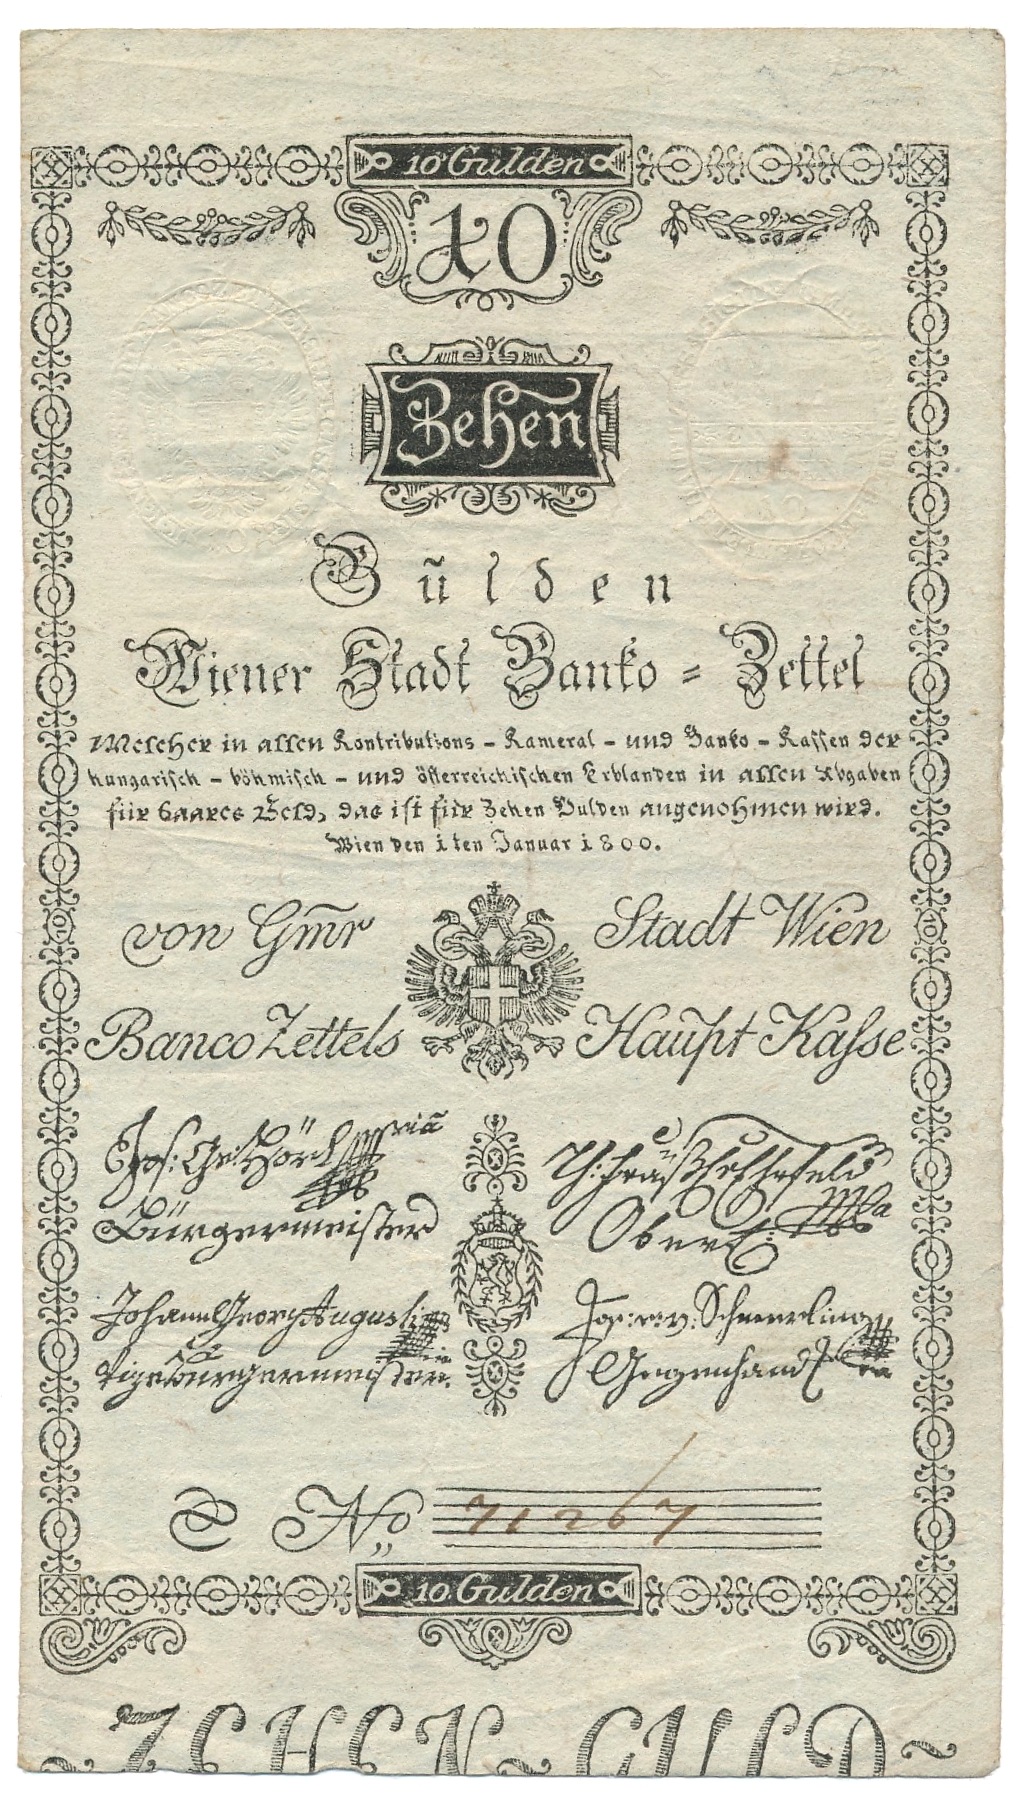 10 Gulden
10
Zehen
Gulden
Wiener Stadt Banko = Zettel
Welcher in allen Kontributions - Kameral - und Banko - Kassen der
hungarisch - böhmisch - und österreichischen Erblanden in allen Abgaben
für baares Geld, das ist für Zehen Gulden angenohmen wird.
Wien den 1ten Januar 1800.
von Gmr Stadt Wien
Banco Zettels Haupt Kasse
Jos: Ge: Hörl
Bürgermeister
Johann Georg Augusti
Vice Bürgermeister.
Jos: v: Schmerling
Gegenhand
No 71267
10 Gulden
ZEHEN GULD